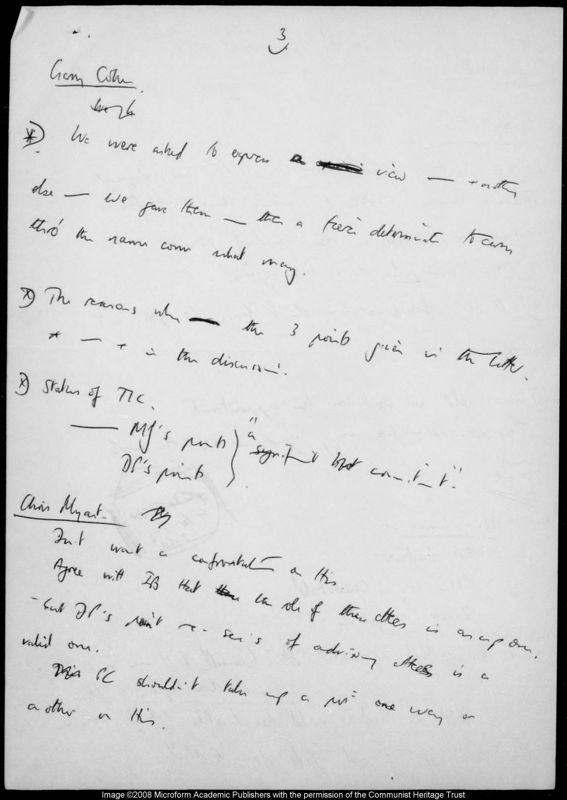 3
Gerry Cohen
*) We were asked to express a view — & nothing
else — we gave them — then a fierce determinat to carry
thro' the name come what may.
*) The reasons why the 3 points given in the letter.
* — + in the discussion.
*) Status of TIC.
— MJ's points } "a
DP's points significant but commitment".
Chris Myant.
Don't want a confrontat on this
Agree with IB that role of these cttees is an open one.
- but DP's point re - series of advisory cttees is a
valid one.
PC shouldn't take up a posn one way or
another on this.
Image ©2008 Microform Academic Publishers with the permission of the Communist Heritage Trust